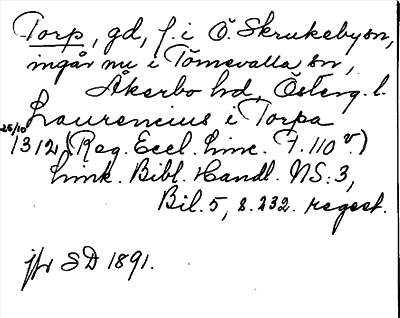 Torp, gd, f. i Ö. Skrukeby sn,
ingår nu i Törnevalla sn,
Åkerbo hd, Österg. l.
Laurencius i Torpa
25/10 1312 (Reg. Eccl. Linc. F. 110 v.)
Link. Bibl. Handl. NS: 3,
Bil. 5, s. 232. regest.
jfr SD 1891.